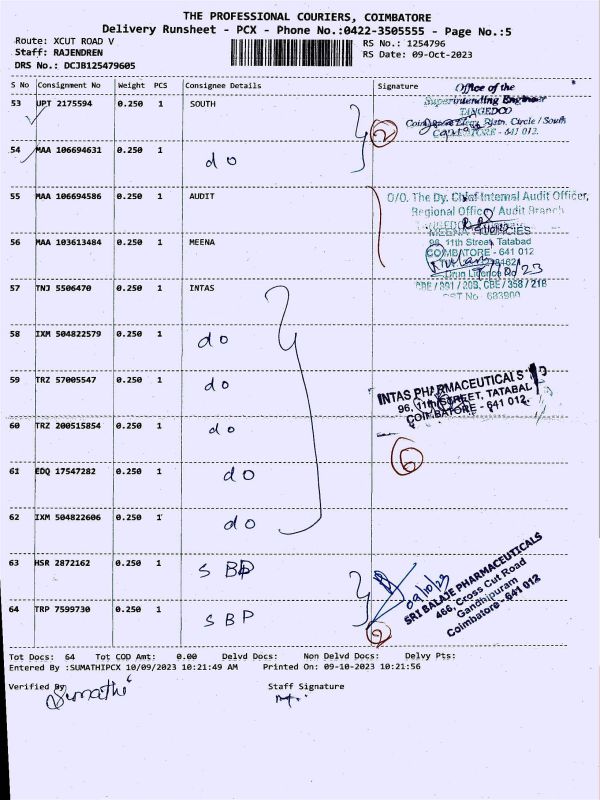 THE PROFESSIONAL COURIERS, COIMBATORE
Delivery Runsheet - PCX - Phone No.:0422-3505555 - Page No.:5
Route: XCUT ROAD V
RS No.: 1254796
Staff: RAJENDREN
RS Date: 09-Oct-2023
DRS No.: DCJB125479605
S No Consignment No Weight PCS Consignee Details Signature
53 UPT 2175594 0.250 1 SOUTH
Office of the
Superintending Engineer
TANGEDCO
Circle / South
COIMBATORE - 641 012.
2
54 MAA 106694631 0.250 1 do
55 MAA 106694586 0.250 1 AUDIT
O/O. The Dy. Chief Internal Audit Officer,
Regional Office / Audit Branch
56 MAA 103613484 0.250 1 MEENA
MEENA AGENCIES
98, 11th Street, Tatabad
COIMBATORE - 641 012
Drug Licence
CBE / 391 / 20B, CBE / 358 / 21B
CST No 683900
57 TNJ 5506470 0.250 1 INTAS
58 IXM 504822579 0.250 1 do
59 TRZ 57005547 0.250 1 do
INTAS PHARMACEUTICALS
96, 11th STREET, TATABAD
COIMBATORE - 641 012.
60 TRZ 200515854 0.250 1 do
6
61 EDQ 17547282 0.250 1 do
62 IXM 504822606 0.250 1 do
63 HSR 2872162 0.250 1 S BP
09/10/23
SRI BALAJE PHARMACEUTICALS
466, Cross Cut Road
Gandhipuram
Coimbatore - 641 012
64 TRP 7599730 0.250 1 S B P
2
Tot Docs: 64 Tot COD Amt: 0.00 Delvd Docs: Non Delvd Docs: Delvy Pts:
Entered By :SUMATHIPCX 10/09/2023 10:21:49 AM Printed On: 09-10-2023 10:21:56
Verified By Staff Signature
Sumathi